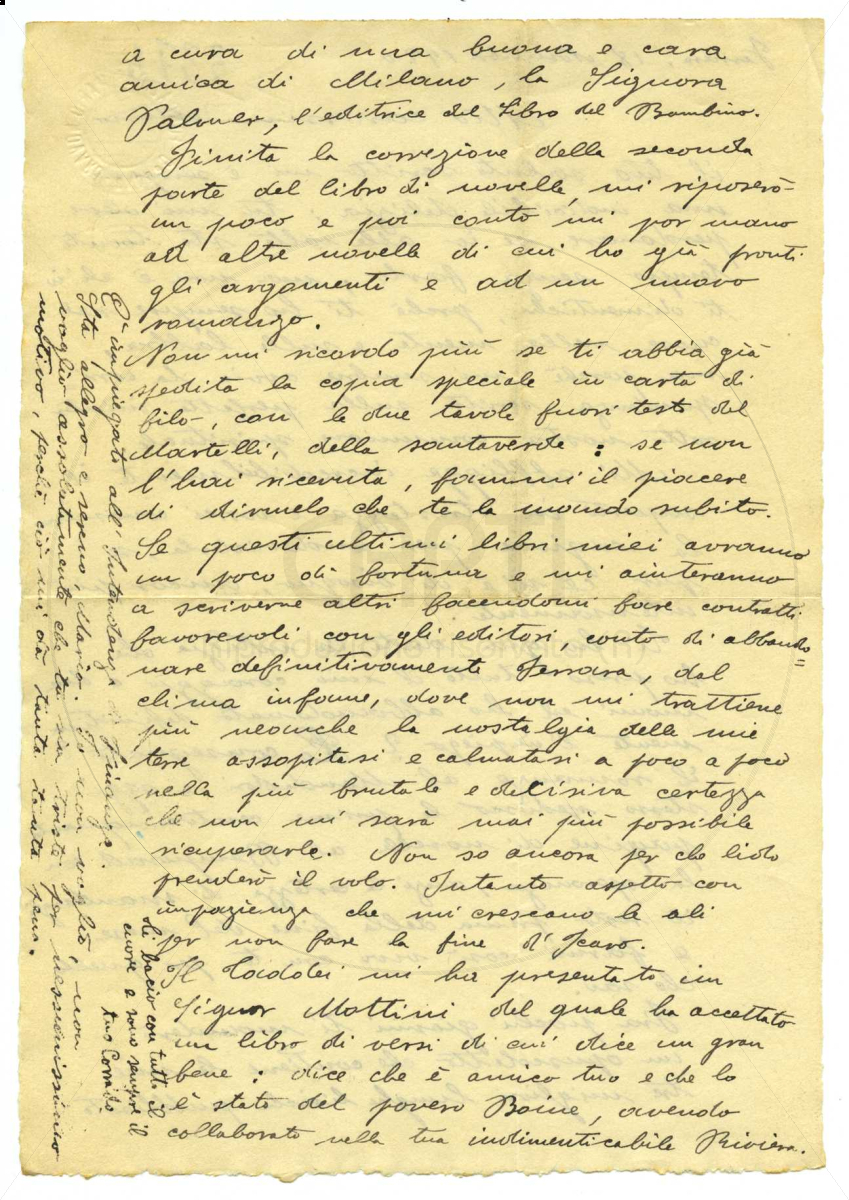 a cura di una buona e cara
amica di Milano, la Signora
Palmer, l'editrice del Libro del Bambino.
Finita la correzione della seconda
parte del libro di novelle, mi riposerò
un poco e poi conto mi por mano
ad altre novelle di cui ho già pronti
gli argomenti e ad un nuovo
romanzo.
Non mi ricordo più se ti abbia già
spedita la copia speciale in carta di
filo, con le due tavole fuori testo del
Martelli, della santaverde: se non
l'hai ricevuta, fammi il piacere
di dirmelo che te la mando subito.
Se questi ultimi libri miei avranno
un poco di fortuna e mi aiuteranno
a scriverne altri facendomi fare contratti
favorevoli con gli editori, conto di abbando=
nare definitivamente Ferrara, dal
clima infame, dove non mi trattiene
più neanche la nostalgia delle mie
terre assopitasi e calmatasi a poco a poco
nella più brutale e decisiva certezza
che non mi sarà mai più possibile
ricuperarle. Non so ancora per che lido
prenderò il volo. Intanto aspetto con
impazienza che mi crescano le ali
per non fare la fine d'Icaro.
Il Taddei mi ha presentato un
Signor Mottini del quale ha accettato
un libro di versi di cui dice un gran
bene: dice che è amico tuo e che lo
è stato del povero Boine, avendo
collaborato nella tua indimenticabile Riviera.
E' impiegato all'Intendenza di Finanza.
Sta allegro e sereno, Mario. Io non voglio, non
voglio assolutamente che tu sia triste per nessunissimo
motivo, perchè ciò mi dà tanta tanta pena.
Ti bacio con tutto il
cuore e sono sempre il
tuo Corrado.